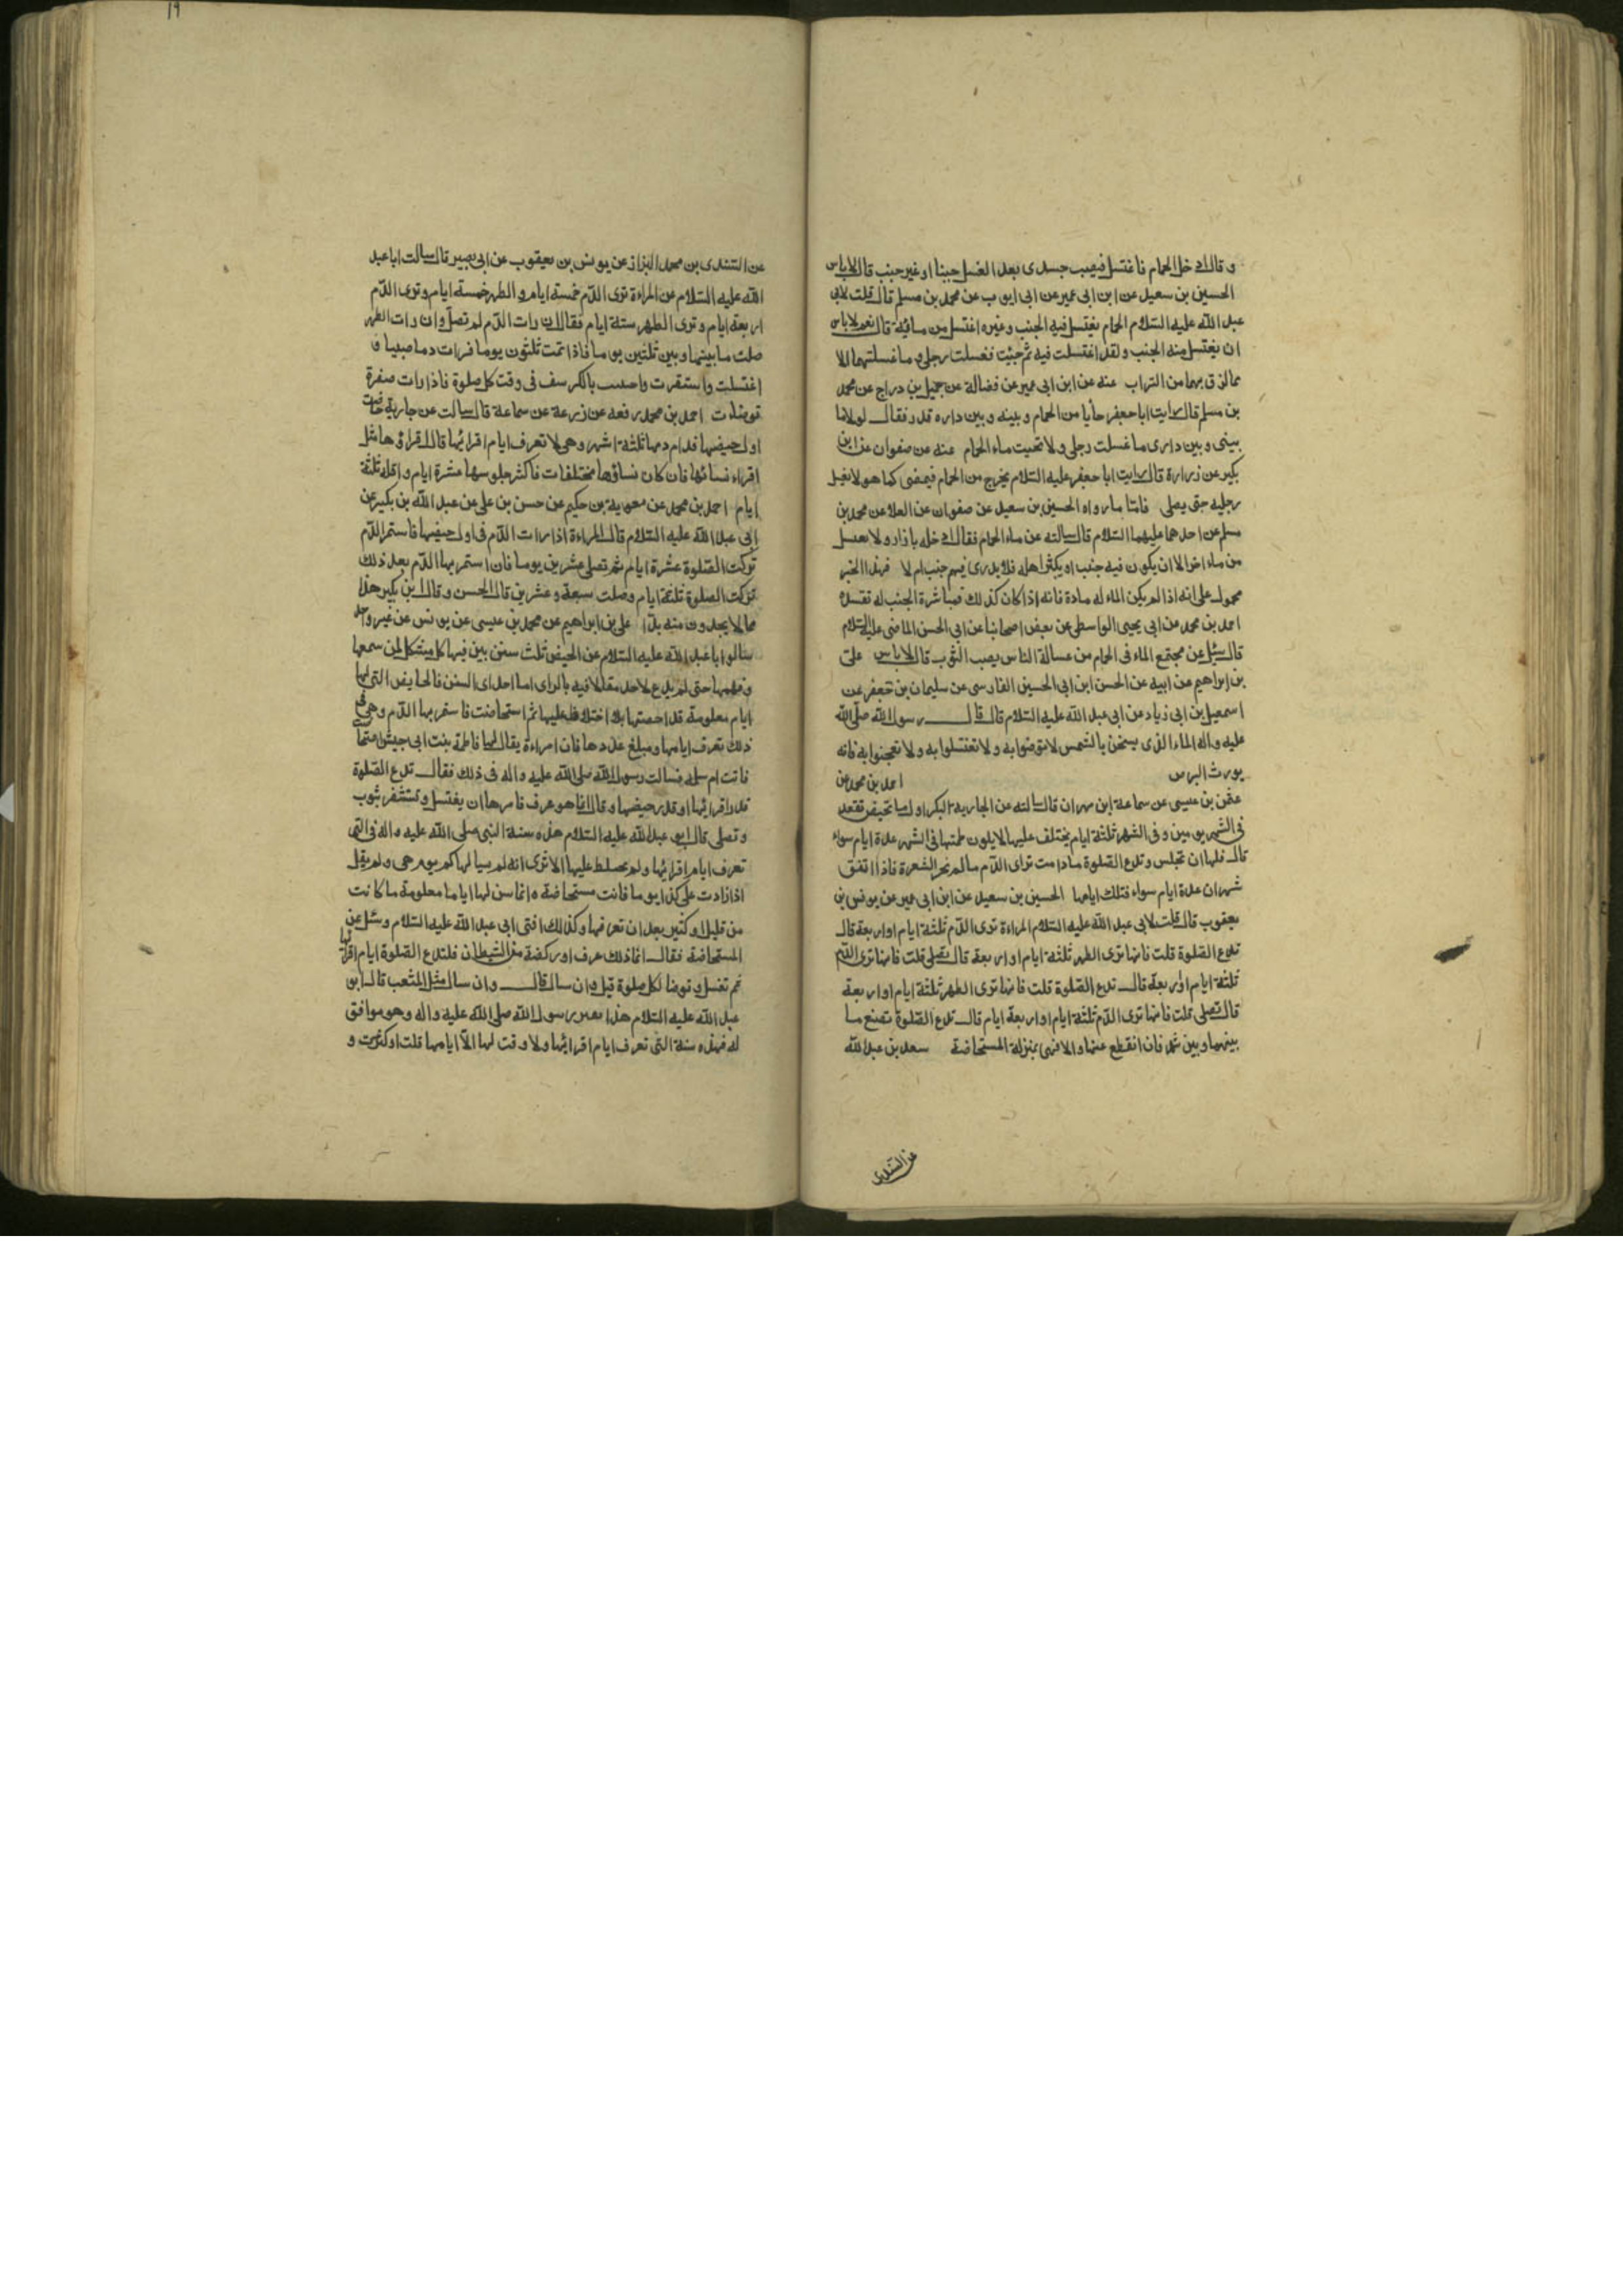 و قال ادخل الحمام فاغتسل فيصيب جسدى بعد الغسل جنبا او غير جنب قال لا باس
الحسين بن سعيد عن ابن ابى عمير عن ابى ايوب عن محمد بن مسلم قال قلت لابى
عبد الله عليه السّلام الحمام يغتسل فيه الجنب وغيره اغتسل من مائه قال نعم لا باس
ان يغتسل منه الجنب ولقد اغتسلت فيه ثم جئت فغسلت رجلى وما غسلتهما الا
مما لزق بهما من التراب عنه عن ابن ابى عمير عن فضالة عن جميل بن دراج عن محمد
بن مسلم قال رايت ابا جعفر جأيا من الحمام وبينه وبين داره قذر فقال لولا ما
بينى وبين دارى ما غسلت رجلى ولا نحيت ماء الحمام عنه عن صفوان عن ابن
بكير عن زرارة قال رايت ابا جعفر عليه السّلام يخرج من الحمام فيمضى كما هو لا يغسل
رجليه حتى يصلى فامّا ما رواه الحسين بن سعيد عن صفوان عن العلا عن محمد بن
مسلم عن احدهما عليهما السّلام قال سالته عن ماء الحمام فقال ادخله بازار ولا تغتسل
من ماء اخر الا ان يكون فيه جنب او يكثر اهله فلا يدرى فيهم جنب ام لا فهذا الخبر
محمول على انه اذا لم يكن الماء له مادة فانه اذا كان كذلك فمباشرة الجنب له تفسده
احمد بن محمد عن ابى يحيى الواسطى عن بعض اصحابنا عن ابى الحسن الماضى عليه السّلام
قال سئل عن مجتمع الماء فى الحمام من غسالة الناس يصيب الثوب قال لا باس على
بن ابراهيم عن ابيه عن الحسن ابن ابى الحسين الفارسى عن سليمان بن جعفر عن
اسمعيل بن ابى زياد عن ابى عبد الله عليه السّلام قال قال رسول الله صلّى الله
عليه واله الماء الذى يسخن بالشمس لا تتوضوا به ولا تغتسلوا به ولا تعجنوا به فانه
يورث البرص احمد بن محمد عن
عثمن بن عيسى عن سماعة ابن مهران قال سالته عن الجارية البكر اول ما تحيض تقعد
فى الشهر يومين وفى الشهر ثلثة ايام يختلف عليها لا يكون طمثها فى الشهر عدة ايام سواء
قال فلها ان تجلس وتدع الصّلوة مادامت ترى الدّم ما لم تجز العشرة فاذا اتفق
شهران عدة ايام سواء فتلك ايامها الحسين بن سعيد عن ابن ابى عمير عن يونس بن
يعقوب قال قلت لابى عبد الله عليه السّلام المراءة ترى الدّم ثلثة ايام او اربعة قال
تدع الصّلوة قلت فانها ترى الطهر ثلثة ايام او اربعة قال تصلى قلت فانها ترى الدّم
ثلثة ايام او اربعة قال تدع الصّلوة قلت فانها ترى الطهر ثلثة ايام او اربعة
قال تصلى قلت فانها ترى الدّم ثلثة ايام او اربعة ايام قال تدع الصّلوة تصنع ما
بينهما وبين شهر فان انقطع عنها والا فهى بمنزلة المستحاضة سعد بن عبد الله
عن السّندى
١٩
عن السّندى بن محمد البزاز عن يونس بن يعقوب عن ابى بصير قال سالت ابا عبد
الله عليه السّلام عن المراءة ترى الدّم خمسة ايام والطهر خمسة ايام وترى الدّم
اربعة ايام وترى الطهر ستة ايام فقال ان رات الدّم لم تصلّ وان رات الطهر
صلت ما بينها وبين ثلثين يوما فاذا تمت ثلثون يوما فرات دما صبيبا
اغتسلت واستثفرت واحتشت بالكرسف فى وقت كل صلوة فاذا رات صفرة
توضات احمد بن محمد رفعه عن زرعة عن سماعة قال سالت عن جارية حاضت
اول حيضها فدام دمها ثلثة اشهر وهى لا تعرف ايام اقرائها قال اقراؤها مثل
اقراء نسائها فان كان نساؤها مختلفات فاكثر جلوسها عشرة ايام واقله ثلثة
ايام احمد بن محمد عن معوية بن حكيم عن حسن بن على عن عبد الله بن بكير عن
ابى عبد الله عليه السّلام قال المراءة اذا رات الدّم فى اول حيضها فاستمر الدّم
تركت الصّلوة عشرة ايام ثم تصلى عشرين يوما فان استمر بها الدّم بعد ذلك
تركت الصلوة ثلثة ايام وصلت سبعة وعشرين قال الحسن وقال ابن بكير هذا
مما لا يجدون منه بدّا على بن ابراهيم عن محمد بن عيسى عن يونس عن غير واحد
سالوا ابا عبد الله عليه السّلام عن الحيض ثلث سنن بين فيها كل مشكل لمن سمعها
وفهمها حتى لم يدع لاحد مقالا فيه بالراى اما احدى السنن فالحايض التى لها
ايام معلومة قد احصتها بلا اختلاط عليها ثم استحاضت فاستمر بها الدّم وهى فى
ذلك تعرف ايامها ومبلغ عددها فان امراءة يقال لها فاطمة بنت ابى حبيش استحاضت
فاتت ام سلمة فسالت رسول الله صلى الله عليه واله فى ذلك فقال تدع الصّلوة
قدر اقرائها او قدر حيضها وقال انما هو عرف فامرها ان يغتسل وتستثفر بثوب
وتصلى قال ابو عبد الله عليه السّلام هذه سنة النبى صلى الله عليه واله فى التى
تعرف ايام اقرائها ولم تختلط عليها الا ترى انه لم يسالها كم يوم هى ولم يقل
اذا زادت على كذا يوما فانت مستحاضة وانما سن لها اياما معلومة ما كانت
من قليل او كثير بعد ان تعرفها وكذلك افتى ابى عبد الله عليه السّلام وسئل عن
المستحاضة فقال انما ذلك عرف او ركضة من الشيطان فلتدع الصّلوة ايام اقرائها
ثم تغسل وتوضا لكل صلوة قيل وان سال قال وان سال مثل المثعب قال ابو
عبد الله عليه السّلام هذا تفسير رسول الله صلى الله عليه واله وهو موافق
له فهذه سنة التى تعرف ايام اقرائها ولا وقت لها الّا ايامها قلت او كثرت و